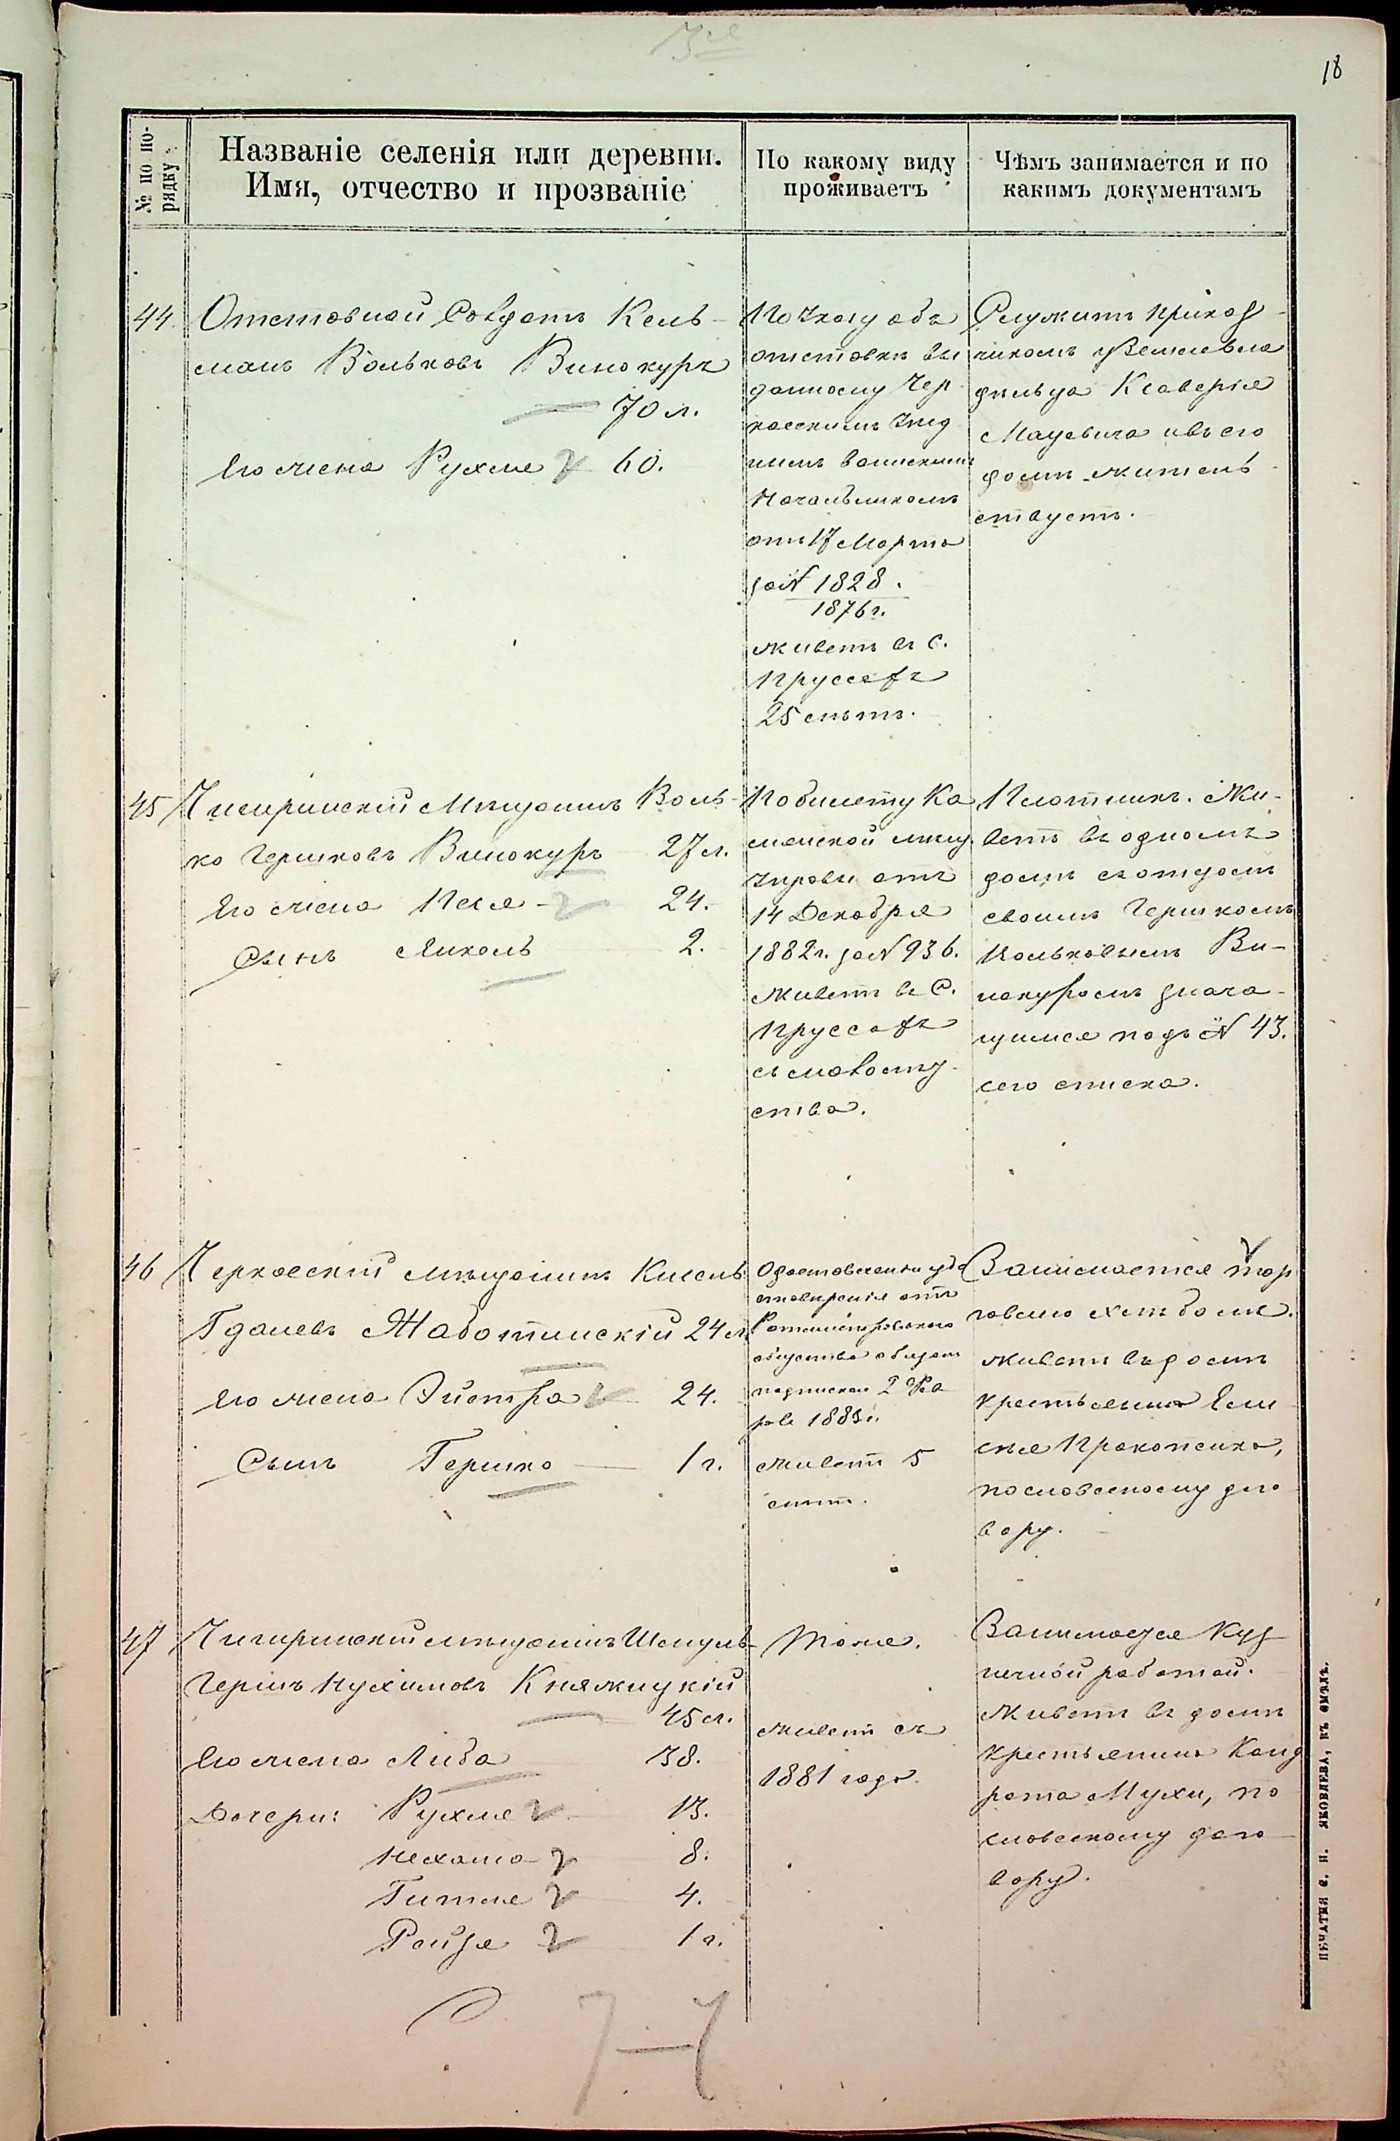 18
№ по по-
рядку.
Названіе селенія или деревни.
Имя, отчество и прозваніе
По какому виду
проживаетъ
Чѣмъ занимается и по
какимъ документамъ
44.
Отставной Солдатъ Кель-
манъ Вольковъ Винокуръ
70 л.
Его жена Рухля 60.
По указу объ
отставкѣ вы
данному Чер
касскимъ Уѣзд
нымъ воинскимъ
Начальникомъ
отъ 17 Марта
за № 1828.
1876 г.
живетъ въ С.
Пруссахъ
25 лѣтъ.
Служитъ приказ-
чикомъ у Землевла
дѣльца Ксаверія
Мацевича и въ его
домѣ жительс
ствуетъ.
45
Чигиринскій Мѣщанинъ Воль-
ко Гершковъ Винокуръ 27 л.
Его жена Песя - 24.
Сынъ Янкель 2.
По билету Ка
менской мѣщ.
управы отъ
14 Декабря
1882 г. за № 936.
Живетъ въ С.
Пруссахъ
съ малолѣт-
ства.
Плотникъ. Жи-
ветъ въ одномъ
домѣ съ отцомъ
своимъ Гершкомъ
Вольковымъ Ви-
нокуромъ знача-
щимся подъ № 43.
сего списка.
46
Черкасскій мѣщанинъ Кисель
Гдалевъ Жаботинскій 24 л.
Его жена Эйстра 24.
Сынъ Гершко 1 г.
О доставленіи удо
стовѣренія отъ
Ротмистровскаго
общества обязанъ
подпискою 2 Ян
варя 1883 г.
живетъ 5
лѣтъ.
Занимается тор
говлею хлѣбомъ.
живетъ въ домѣ
крестьянина Ели
сея Прокопенка,
по словесному дого
вору.
47
Чигиринскій мѣщанинъ Шмуль-
Гершъ Нухимовъ Княжицкій
45 л.
Его жена Либа 38.
Дочери: Рухля 13.
Нехама - 8.
Гитля 4.
Рейзя 1 г.
Тоже.
живетъ съ
1881 года.
Занимается Куз-
нечной работой.
Живетъ въ домѣ
крестьянина Конд
рата Мухи, по
словесному дого-
вору.
7-4
ПЕЧАТНЯ С. Н. ЯКОВЛЕВА, ВЪ СМѢЛѢ.